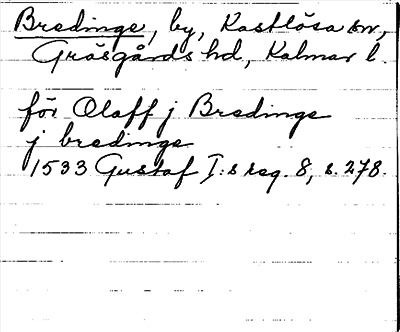 Bredinge, by, Kastlösa sn,
Gräsgårds hd, Kalmar l.
för Olaff j Bredinge
j bredinge
1533 Gustaf I:s reg. 8, s. 278.